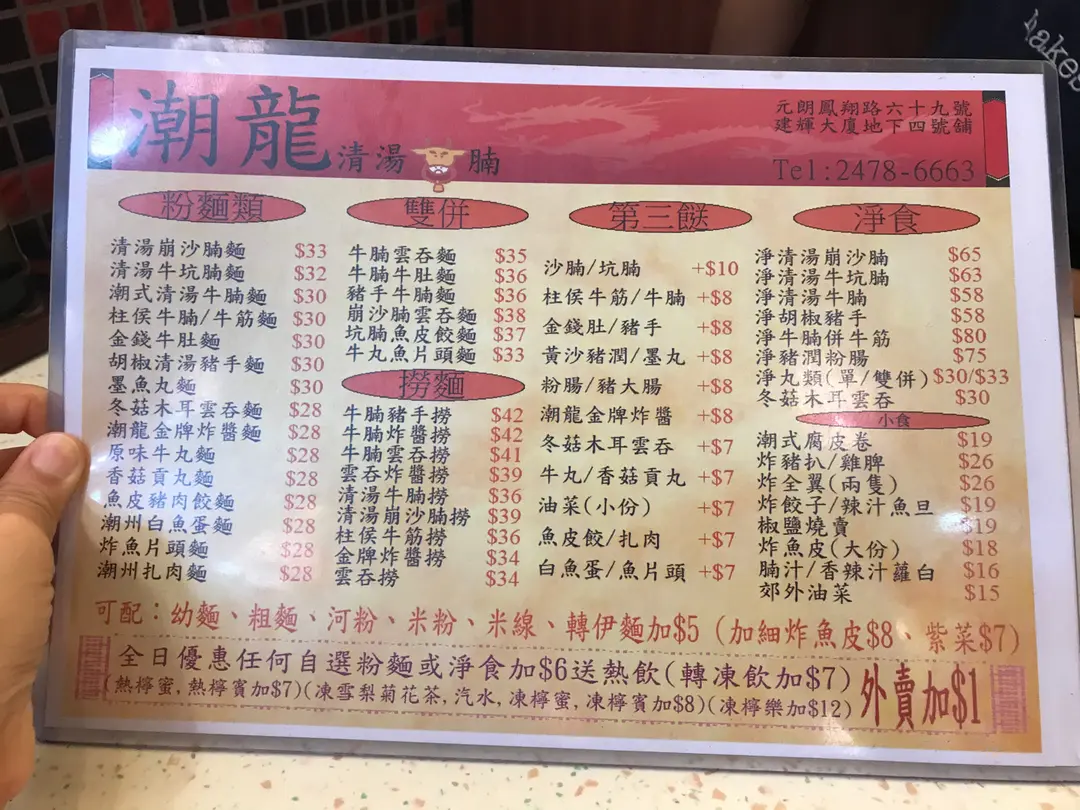 潮龍清湯腩
元朗鳳翔路六十九號
建輝大廈地下四號舖
Tel:2478-6663
粉麵類
清湯崩沙腩麵 $33
清湯牛坑腩麵 $32
潮式清湯牛腩麵 $30
柱侯牛腩/牛筋麵 $30
金錢牛肚麵 $30
胡椒清湯豬手麵 $30
墨魚丸麵 $30
冬菇木耳雲吞麵 $28
潮龍金牌炸醬麵 $28
原味牛丸麵 $28
香菇貢丸麵 $28
魚皮豬肉餃麵 $28
潮州白魚蛋麵 $28
炸魚片頭麵 $28
潮州扎肉麵 $28
雙併
牛腩雲吞麵 $35
牛腩牛肚麵 $36
豬手牛腩麵 $36
崩沙腩雲吞麵 $38
坑腩魚皮餃麵 $37
牛丸魚片頭麵 $33
撈麵
牛腩豬手撈 $42
牛腩炸醬撈 $42
牛腩雲吞撈 $41
雲吞炸醬撈 $39
清湯牛腩撈 $36
清湯崩沙腩撈 $39
柱侯牛筋撈 $36
金牌炸醬撈 $34
雲吞撈 $34
第三餸
沙腩/坑腩 +$10
柱侯牛筋/牛腩 +$8
金錢肚/豬手 +$8
黃沙豬潤/墨丸 +$8
粉腸/豬大腸 +$8
潮龍金牌炸醬 +$8
冬菇木耳雲吞 +$7
牛丸/香菇貢丸 +$7
油菜(小份) +$7
魚皮餃/扎肉 +$7
白魚蛋/魚片頭 +$7
淨食
淨清湯崩沙腩 $65
淨清湯牛坑腩 $63
淨清湯牛腩 $58
淨胡椒豬手 $58
淨牛腩併牛筋 $80
淨豬潤粉腸 $75
淨丸類(單/雙併) $30/$33
冬菇木耳雲吞 $30
小食
潮式腐皮卷 $19
炸豬扒/雞脾 $26
炸全翼(兩隻) $26
炸餃子/辣汁魚旦 $19
椒鹽燒賣 $19
炸魚皮(大份) $18
腩汁/香辣汁蘿白 $16
郊外油菜 $15
可配：幼麵、粗麵、河粉、米粉、米線、轉伊麵加$5 (加細炸魚皮$8、紫菜$7)
全日優惠任何自選粉麵或淨食加$6送熱飲(轉凍飲加$7)
(熱檸蜜,熱檸賓加$7)(凍雪梨菊花茶,汽水,凍檸蜜,凍檸賓加$8)(凍檸樂加$12)
外賣加$1
hakes